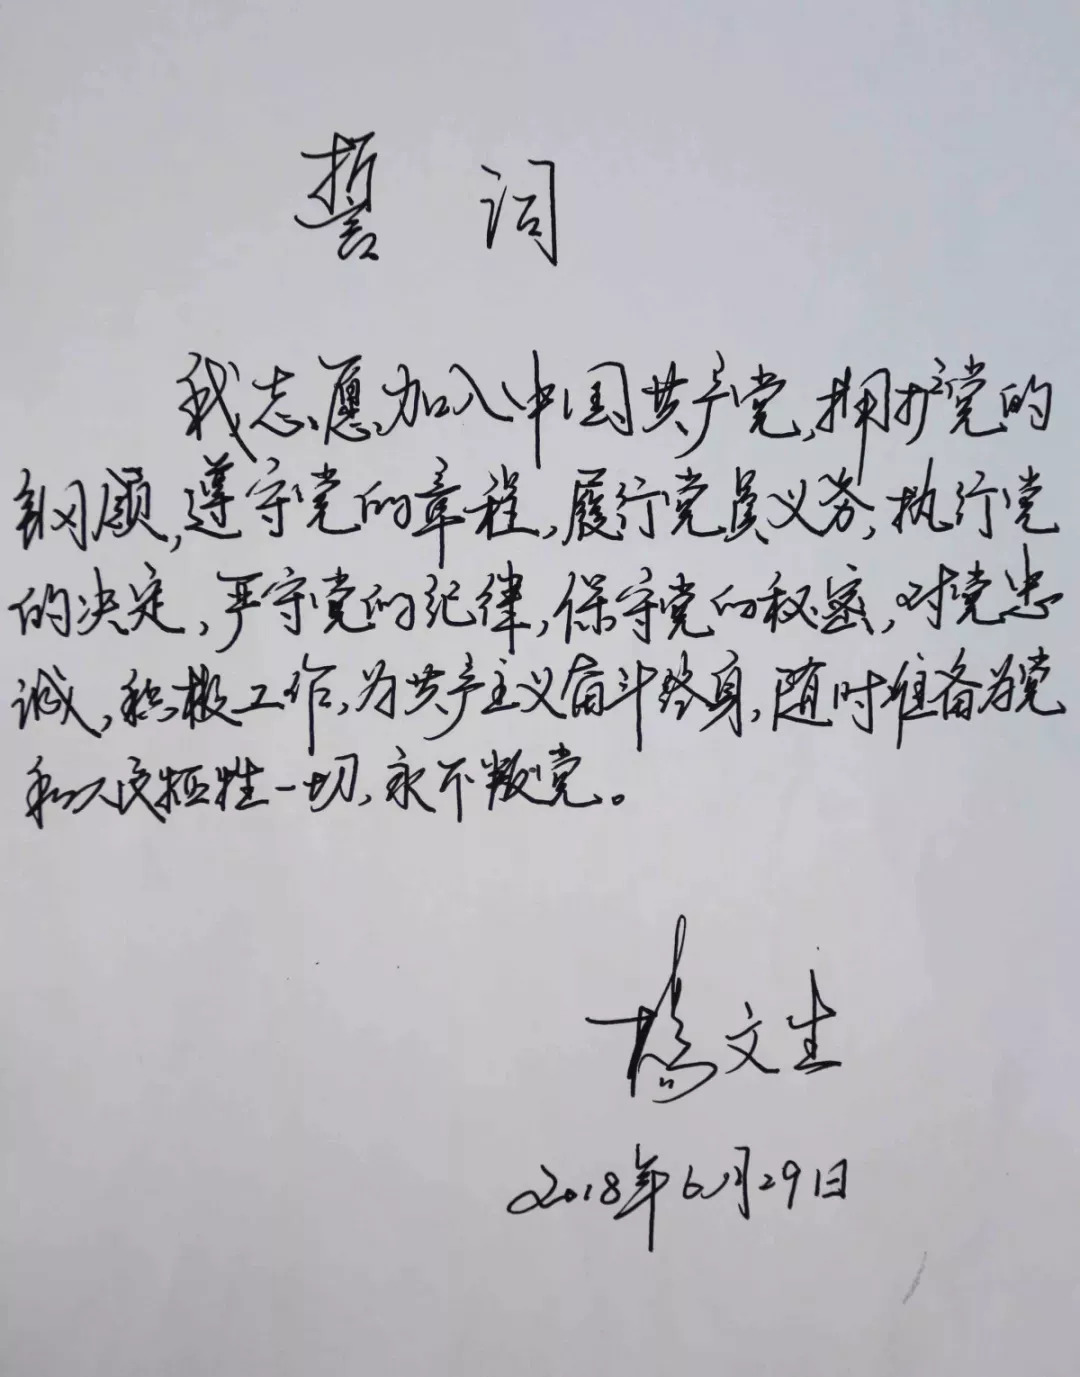 誓词
我志愿加入中国共产党,拥护党的
纲领,遵守党的章程,履行党员义务,执行党
的决定,严守党的纪律,保守党的秘密,对党忠
诚,积极工作,为共产主义奋斗终身,随时准备为党
和人民牺牲一切,永不叛党。
杨文生
2018年6月29日